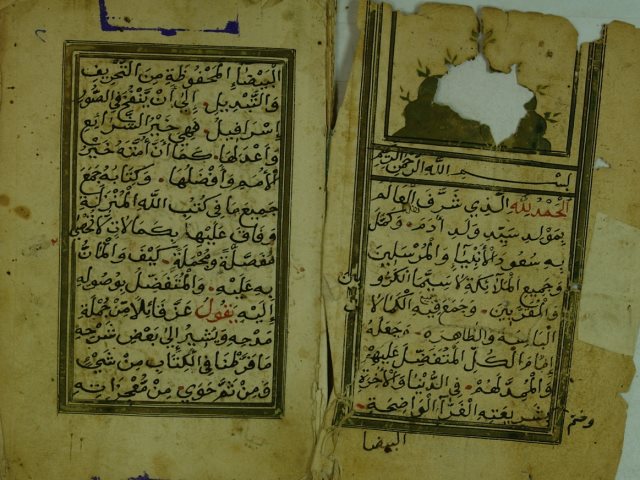 بِسْمِ اللهِ الرَّحْمٰنِ الرَّحِيمِ
الْحَمْدُ لِلهِ الَّذِي شَرَّفَ الْعَالَمَ
بِمَوْلِدِ سَيِّدِ وَلَدِ أٰدَمَ وَكَمَّلَ
بِهِ سُعُودَ الْأَنْبِيَا وَالْمُرْسَلِينَ
وَجَمِيعِ الْمَلَائِكَةِ لَا سِيَّمَا الْكَرُوبِيِّينَ
وَالْمُقَرَّبِينَ وَجَمَعَ فِيهِ الْكَمَالَاتِ
الْبَاطِنَةَ وَالظَّاهِرَةَ وَجَعَلَهُ
إِمَامَ الْكُلِّ الْمُتَفَضِّلَ عَلَيْهِمْ
وَالْمُمِدَّ لَهُمْ فِي الدُّنْيَا وَالْأٰخِرَةِ وختم
شَرِيعَتِهِ الْغَرَّا الْوَاضِحَةِ
البيضا
الْبَيْضَاءِ الْمَحْفُوظَةِ مِنَ التَّحْرِيفِ
وَالتَّبْدِيلِ إِلَى أَنْ يَنْفُخَ فِي الصُّورِ
إِسْرَافِيلُ فَهِيَ خَيْرُ الشَّرَائِعِ
وَأَعْدَلُهَا كَمَا أَنَّ أُمَّتَهُ خَيْرُ
الْأُمَمِ وَأَفْضَلُهَا وَكِتَابُهُ جَمَعَ
جَمِيعَ مَا فِي كُتُبِ اللهِ الْمُنْزَلَةِ
وَفَاقَ عَلَيْهَا بِكَمَالَاتٍ لَا تُحْصَى
مُفَصَّلَةً وَمُجْمَلَةً كَيْفَ وَالْمَانُّ
بِهِ عَلَيْهِ وَالْمُتَفَضِّلُ بِوُصُولِهِ
إِلَيْهِ يَقُولُ عَزَّ قَائِلًا مِنْ جُمْلَةِ
مَدْحِهِ وَيُشِيرُ إِلَى بَعْضِ شَرْحِهِ
مَا فَرَّطْنَا فِي الْكِتَابِ مِنْ شَيْءٍ
وَمِنْ ثَمَّ حَوَى مِنْ مُعْجِزَاتِهِ